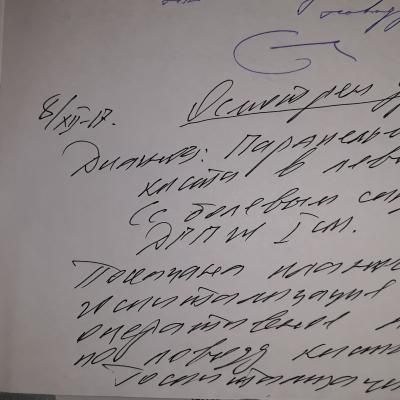 8/XII-17. Осмотрен
Диагноз: Парапельви
киста в лев
(с болевым син
ДГПЖ I ст.
Показана планов
госпитализация
оперативное
по поводу кист
Госпитализаци